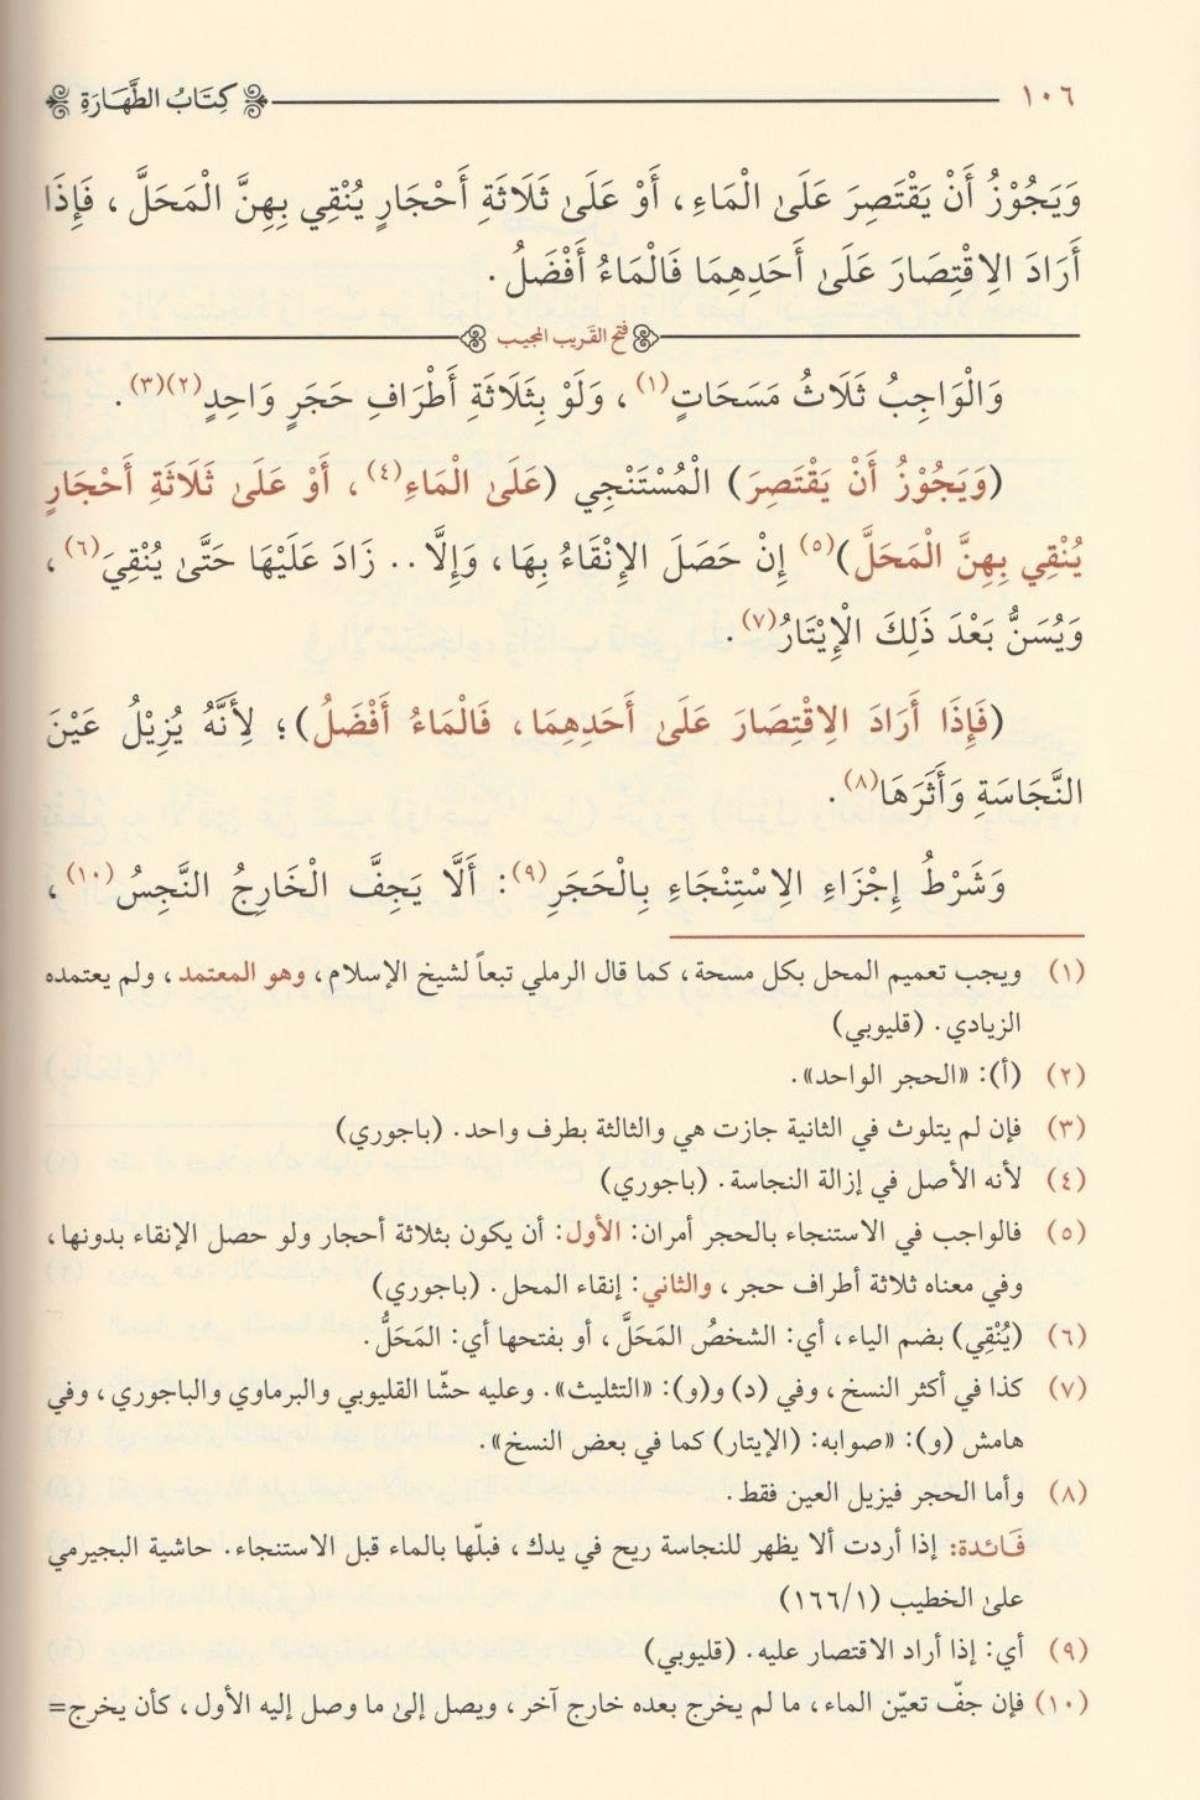 ١٠٦ كِتَابُ الطَّهَارَةِ
وَيَجُوْزُ أَنْ يَقْتَصِرَ عَلَىٰ الْمَاءِ، أَوْ عَلَىٰ ثَلَاثَةِ أَحْجَارٍ يُنْقِي بِهِنَّ الْمَحَلَّ، فَإِذَا
أَرَادَ الِاقْتِصَارَ عَلَىٰ أَحَدِهِمَا فَالْمَاءُ أَفْضَلُ.
فتح القَريب المجيب
وَالْوَاجِبُ ثَلَاثُ مَسَحَاتٍ(١)، وَلَوْ بِثَلَاثَةِ أَطْرَافِ حَجَرٍ وَاحِدٍ(٢)(٣).
(وَيَجُوْزُ أَنْ يَقْتَصِرَ) الْمُسْتَنْجِي (عَلَىٰ الْمَاءِ(٤)، أَوْ عَلَىٰ ثَلَاثَةِ أَحْجَارٍ
يُنْقِي بِهِنَّ الْمَحَلَّ)(٥) إِنْ حَصَلَ الإِنْقَاءُ بِهَا، وَإِلَّا.. زَادَ عَلَيْهَا حَتَّىٰ يُنْقِيَ(٦)،
وَيُسَنُّ بَعْدَ ذَلِكَ الْإِيْتَارُ(٧).
(فَإِذَا أَرَادَ الِاقْتِصَارَ عَلَىٰ أَحَدِهِمَا، فَالْمَاءُ أَفْضَلُ)؛ لِأَنَّهُ يُزِيْلُ عَيْنَ
النَّجَاسَةِ وَأَثَرَهَا(٨).
وَشَرْطُ إِجْزَاءِ الِاسْتِنْجَاءِ بِالْحَجَرِ(٩): أَلَّا يَجِفَّ الْخَارِجُ النَّجِسُ(١٠)،
(١) ويجب تعميم المحل بكل مسحة، كما قال الرملي تبعاً لشيخ الإسلام، وهو المعتمد، ولم يعتمده
الزيادي. (قليوبي)
(٢) (أ): «الحجر الواحد».
(٣) فإن لم يتلوث في الثانية جازت هي والثالثة بطرف واحد. (باجوري)
(٤) لأنه الأصل في إزالة النجاسة. (باجوري)
(٥) فالواجب في الاستنجاء بالحجر أمران: الأول: أن يكون بثلاثة أحجار ولو حصل الإنقاء بدونها،
وفي معناه ثلاثة أطراف حجر، والثاني: إنقاء المحل. (باجوري)
(٦) (يُنْقِي) بضم الياء، أي: الشخصُ المَحَلَّ، أو بفتحها أي: المَحَلُّ.
(٧) كذا في أكثر النسخ، وفي (د) و(و): «التثليث». وعليه حشّا القليوبي والبرماوي والباجوري، وفي
هامش (و): «صوابه: (الإيتار) كما في بعض النسخ».
(٨) وأما الحجر فيزيل العين فقط.
فَائدة: إذا أردت ألا يظهر للنجاسة ريح في يدك، فبلّها بالماء قبل الاستنجاء. حاشية البجيرمي
علىٰ الخطيب (١٦٦/١)
(٩) أي: إذا أراد الاقتصار عليه. (قليوبي)
(١٠) فإن جفّ تعيّن الماء، ما لم يخرج بعده خارج آخر، ويصل إلىٰ ما وصل إليه الأول، كأن يخرج=